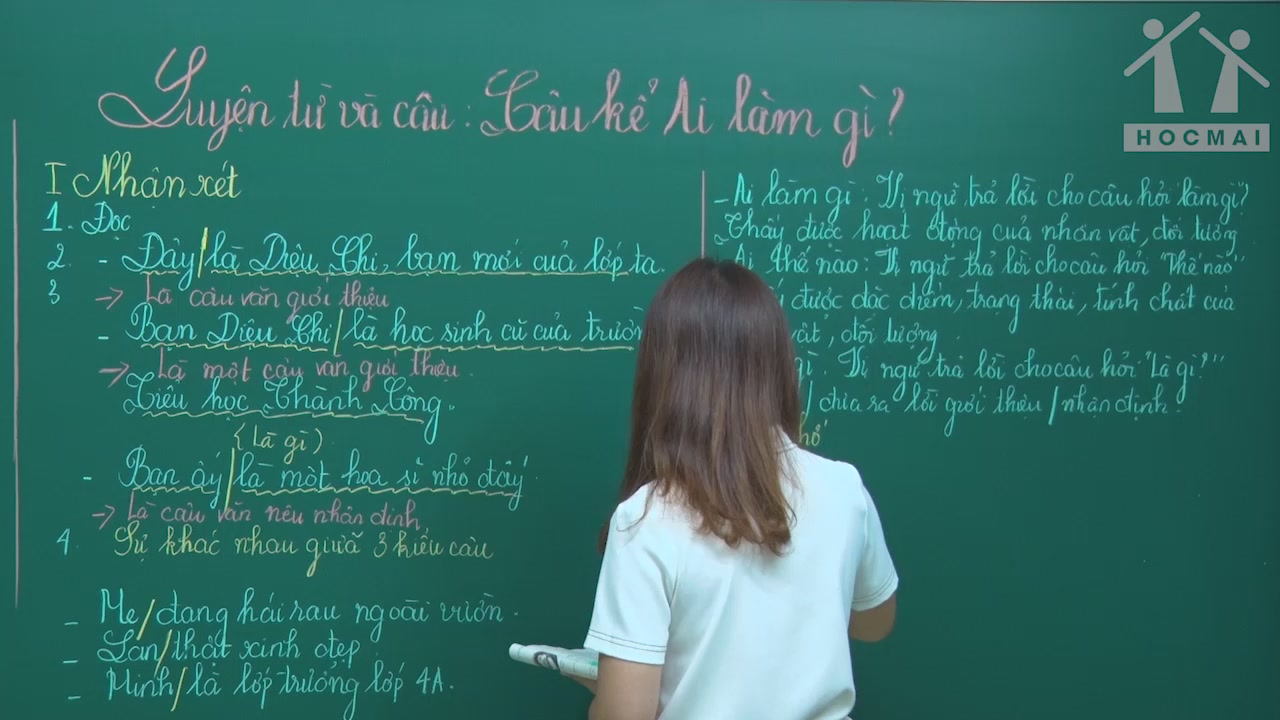 Luyện từ và câu: Câu kể Ai làm gì?
HOCMAI
I Nhận xét
1. Đọc
2. - Đây/là Diệu Chi, bạn mới của lớp ta.
3 → Là câu văn giới thiệu
- Bạn Diệu Chi/là học sinh cũ của trườn
→ Là một câu văn giới thiệu.
Tiểu học Thành Công.
(Là gì)
- Bạn ấy/là một họa sĩ nhỏ đấy
→ Là câu văn nêu nhận định
4. Sự khác nhau giữa 3 kiểu câu
- Mẹ/đang hái rau ngoài vườn.
- Lan/thật xinh đẹp
- Minh/là lớp trưởng lớp 4A.
- Ai làm gì: Vị ngữ trả lời cho câu hỏi làm gì?
Thấy được hoạt động của nhân vật, đối tượng
Ai thế nào: Vị ngữ trả lời cho câu hỏi "Thế nào"
được đặc điểm, trạng thái, tính chất của
vật, đối tượng.
gì. Vị ngữ trả lời cho câu hỏi "Là gì?"
/chỉa ra lời giới thiệu/nhận định.
hớ